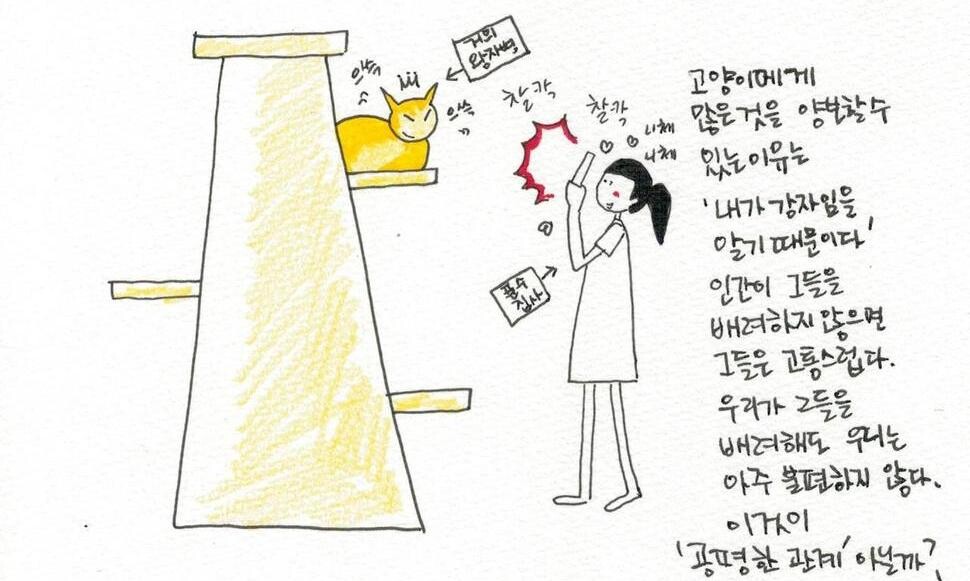 거의
왕자병
으쓱
으쓱
찰칵
찰칵
니체
니체
풀수
집사
고양이에게
많은것을 양보할수
있는이유는
'내가 강자임을
알기 때문이다'
인간이 그들을
배려하지 않으면
그들은 고통스럽다.
우리가 그들을
배려해도 우리는
아주 불편하지 않다.
이것이
'공평한 관계' 아닐까?